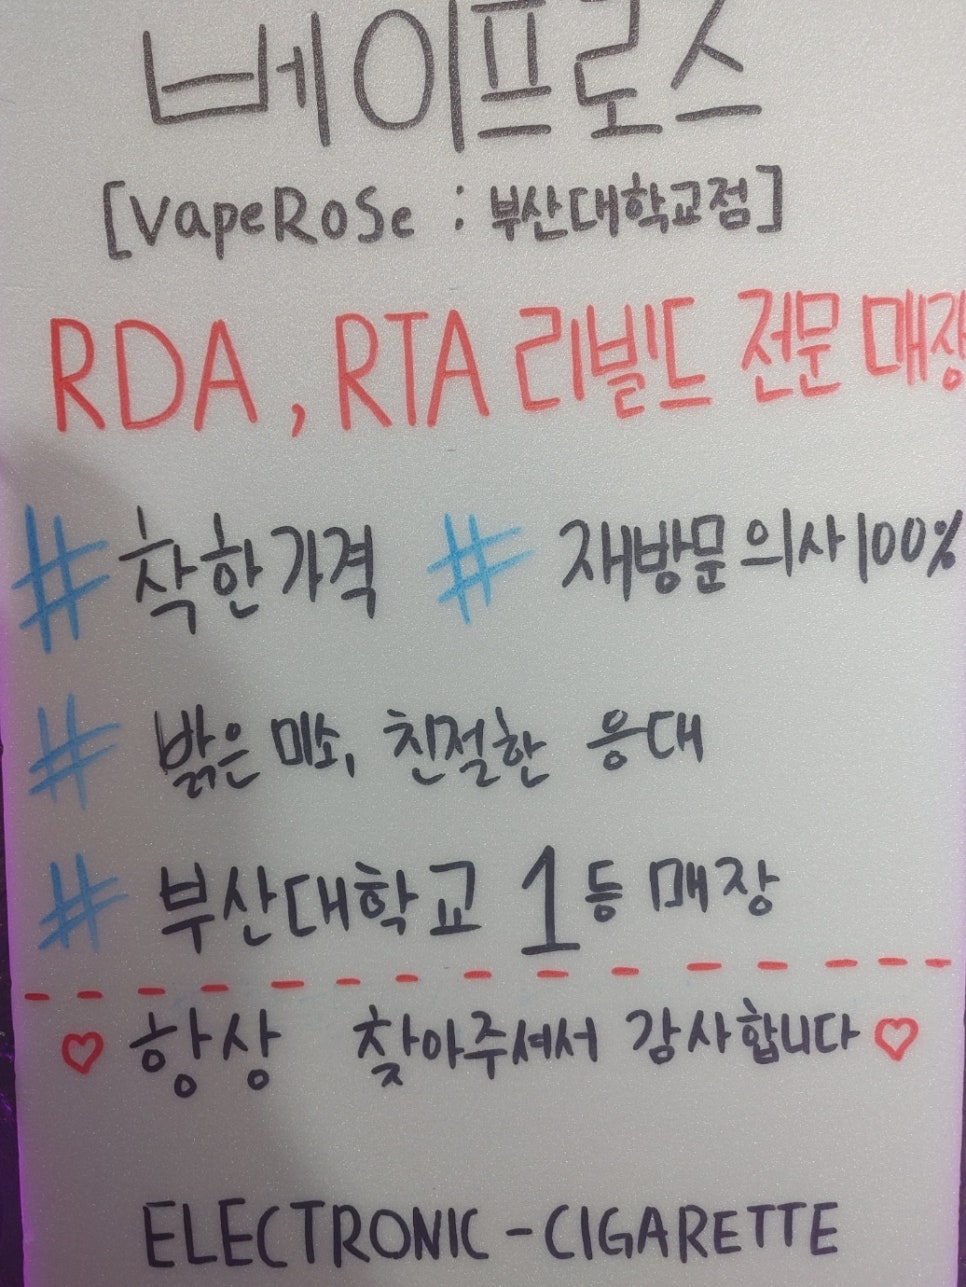 베이프로스
[VapeRoSe : 부산대학교점]
RDA, RTA 리빌드 전문 매장
# 착한가격 # 재방문의사100%
# 밝은 미소, 친절한 응대
# 부산대학교 1등 매장
♡ 항상 찾아주셔서 감사합니다 ♡
ELECTRONIC - CIGARETTE